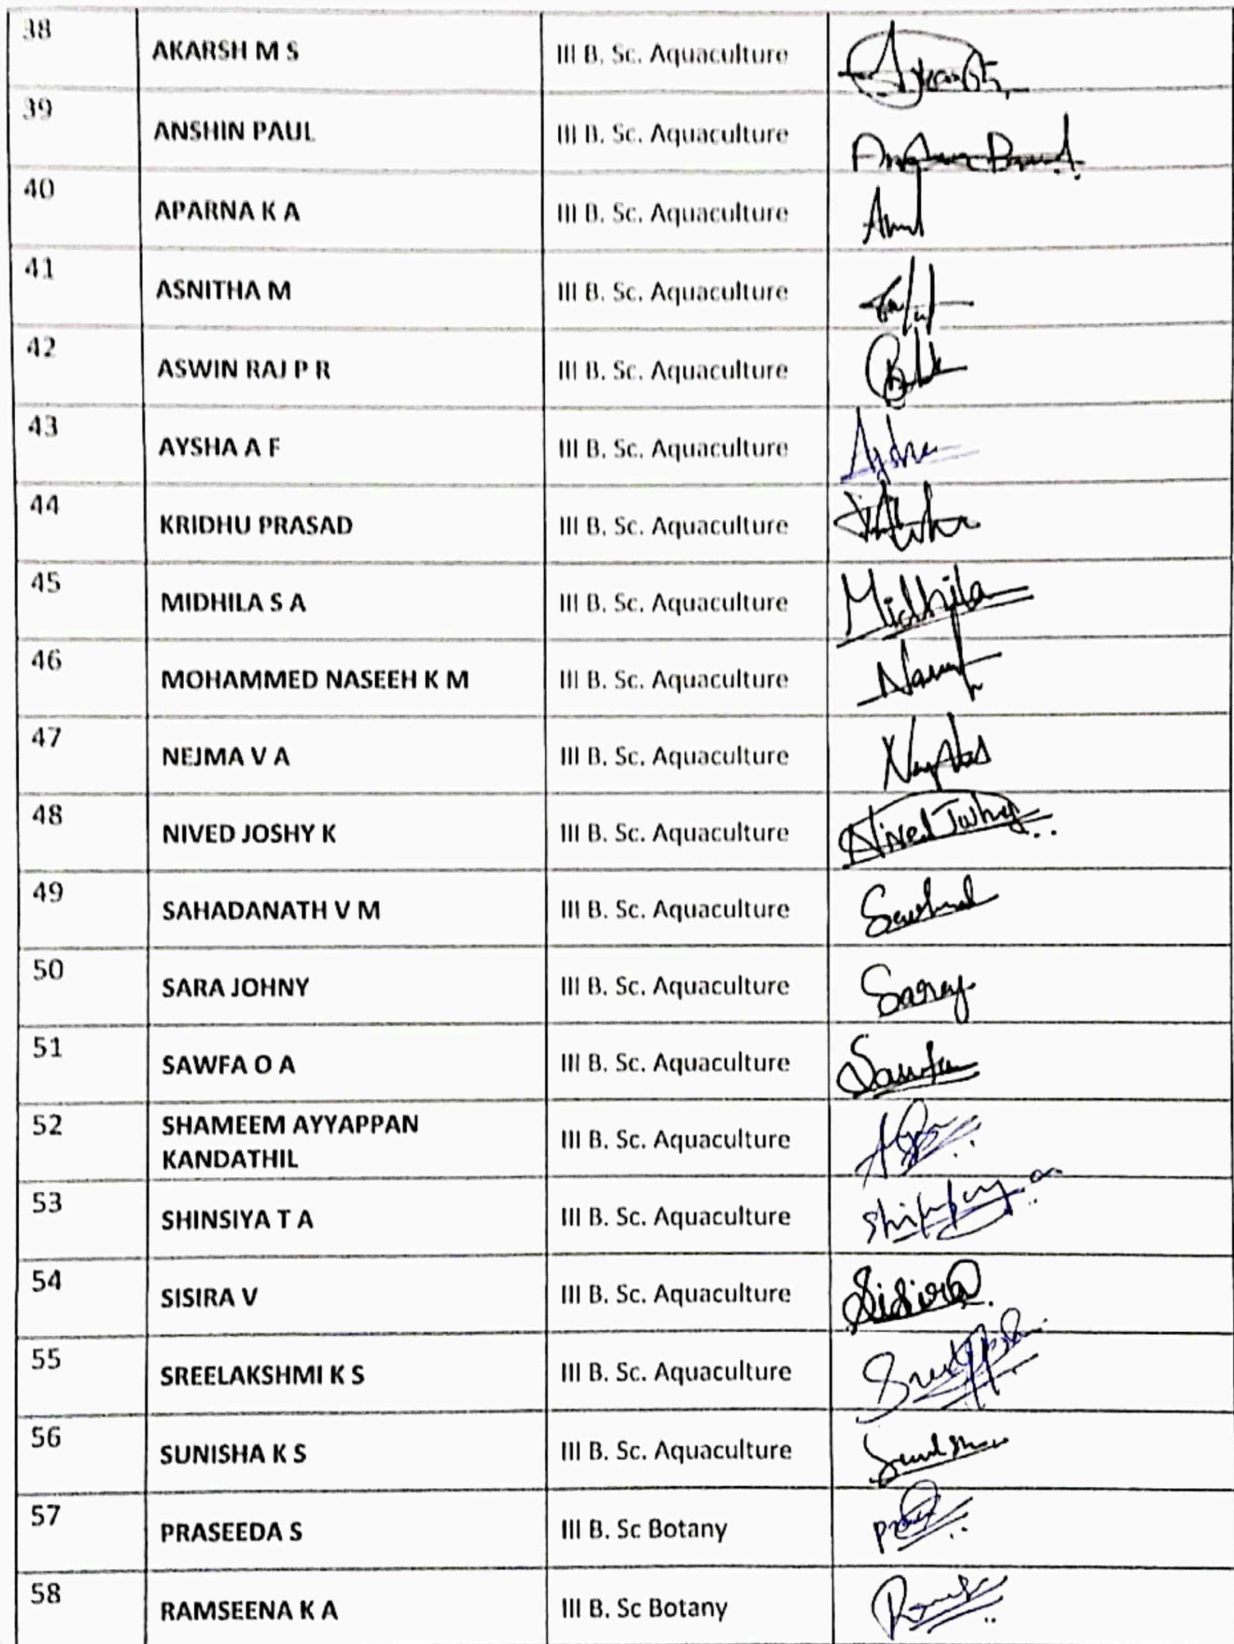 38 AKARSH M S III B. Sc. Aquaculture
39 ANSHIN PAUL III B. Sc. Aquaculture
40 APARNA K A III B. Sc. Aquaculture
41 ASNITHA M III B. Sc. Aquaculture
42 ASWIN RAJ P R III B. Sc. Aquaculture
43 AYSHA A F III B. Sc. Aquaculture
44 KRIDHU PRASAD III B. Sc. Aquaculture
45 MIDHILA S A III B. Sc. Aquaculture Midhila
46 MOHAMMED NASEEH K M III B. Sc. Aquaculture
47 NEJMA V A III B. Sc. Aquaculture
48 NIVED JOSHY K III B. Sc. Aquaculture Nived Joshy
49 SAHADANATH V M III B. Sc. Aquaculture
50 SARA JOHNY III B. Sc. Aquaculture
51 SAWFA O A III B. Sc. Aquaculture
52 SHAMEEM AYYAPPAN
KANDATHIL III B. Sc. Aquaculture
53 SHINSIYA T A III B. Sc. Aquaculture
54 SISIRA V III B. Sc. Aquaculture Sisira
55 SREELAKSHMI K S III B. Sc. Aquaculture
56 SUNISHA K S III B. Sc. Aquaculture
57 PRASEEDA S III B. Sc Botany
58 RAMSEENA K A III B. Sc Botany